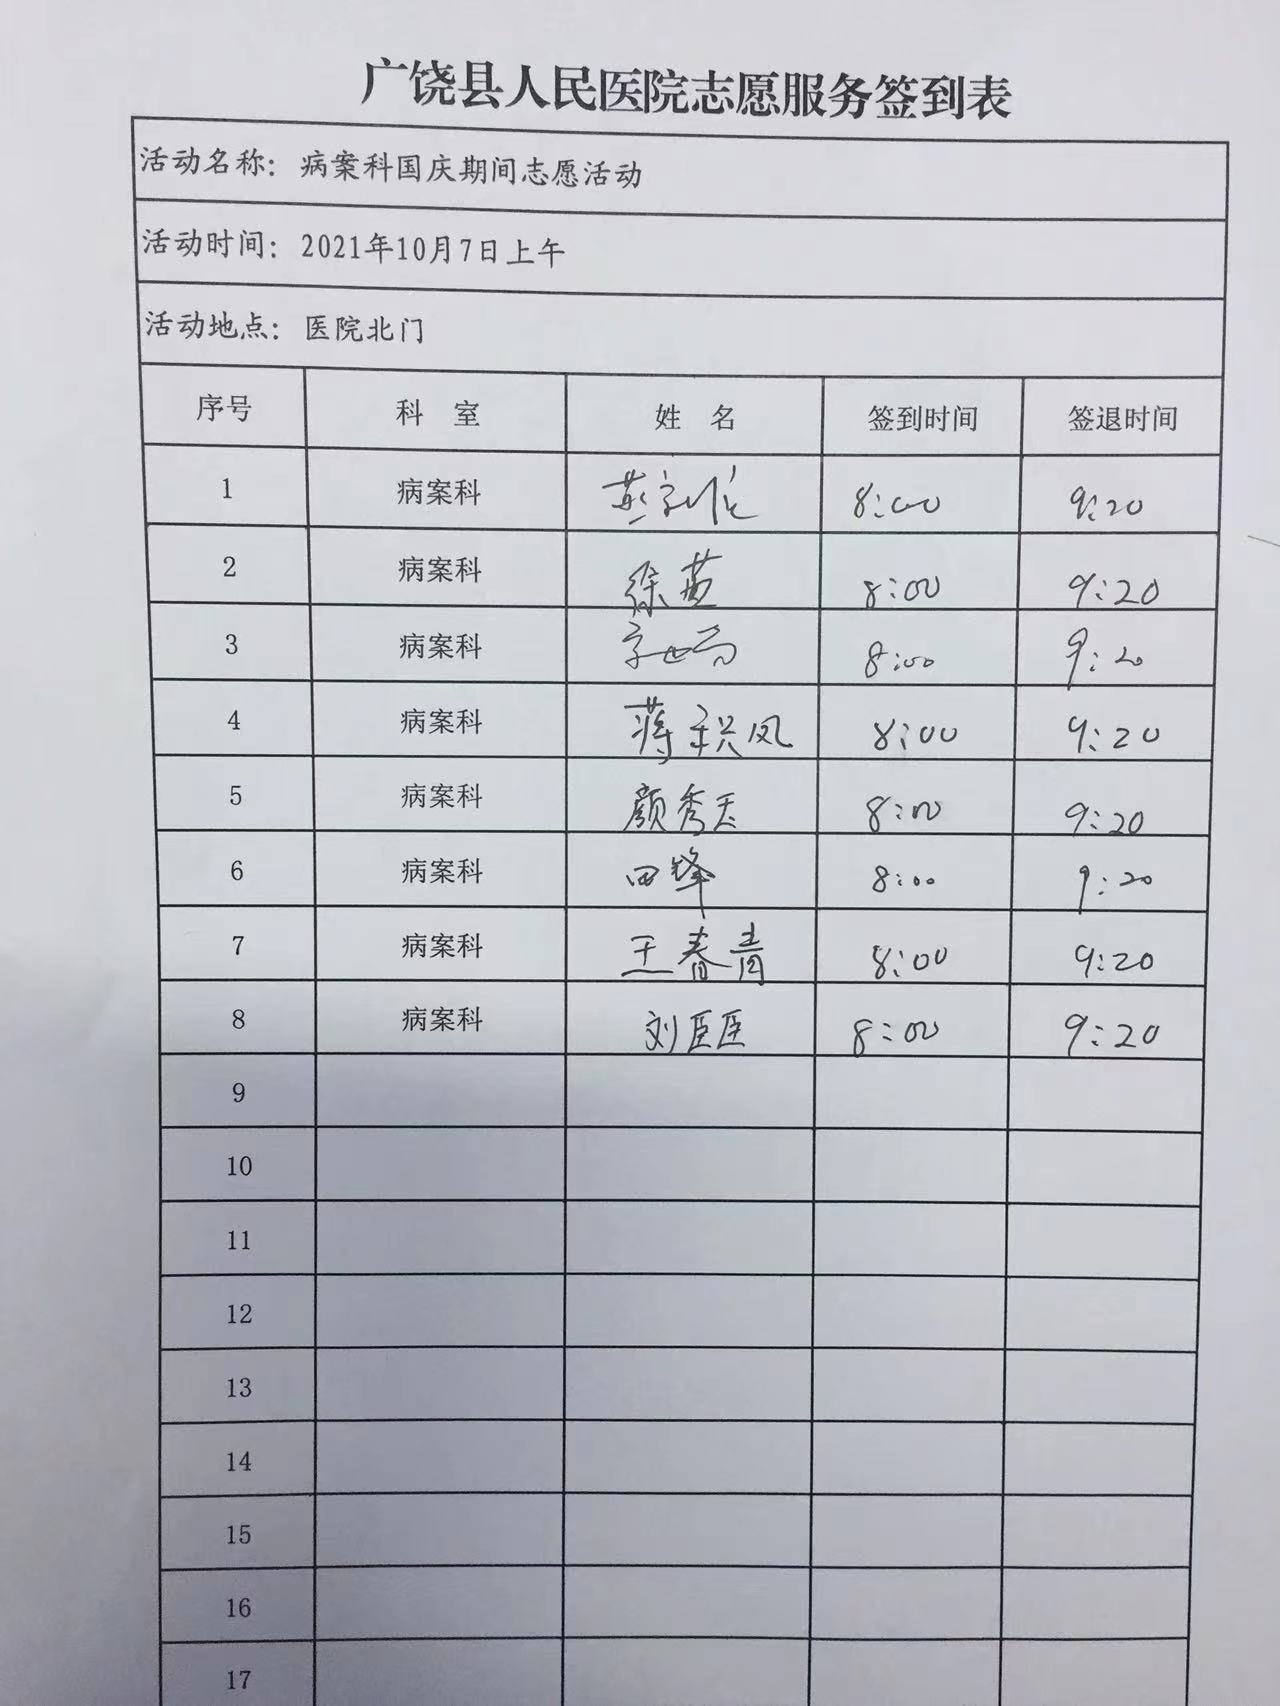 广饶县人民医院志愿服务签到表
活动名称：病案科国庆期间志愿活动
活动时间：2021年10月7日上午
活动地点：医院北门
序号 科 室 姓 名 签到时间 签退时间
1 病案科 8:00 9:20
2 病案科 徐燕 8:00 9:20
3 病案科 8:00 9:20
4 病案科 蒋 凤 8:00 9:20
5 病案科 颜秀玉 8:00 9:20
6 病案科 田锋 8:00 9:20
7 病案科 王春青 8:00 9:20
8 病案科 刘臣臣 8:00 9:20
9
10
11
12
13
14
15
16
17